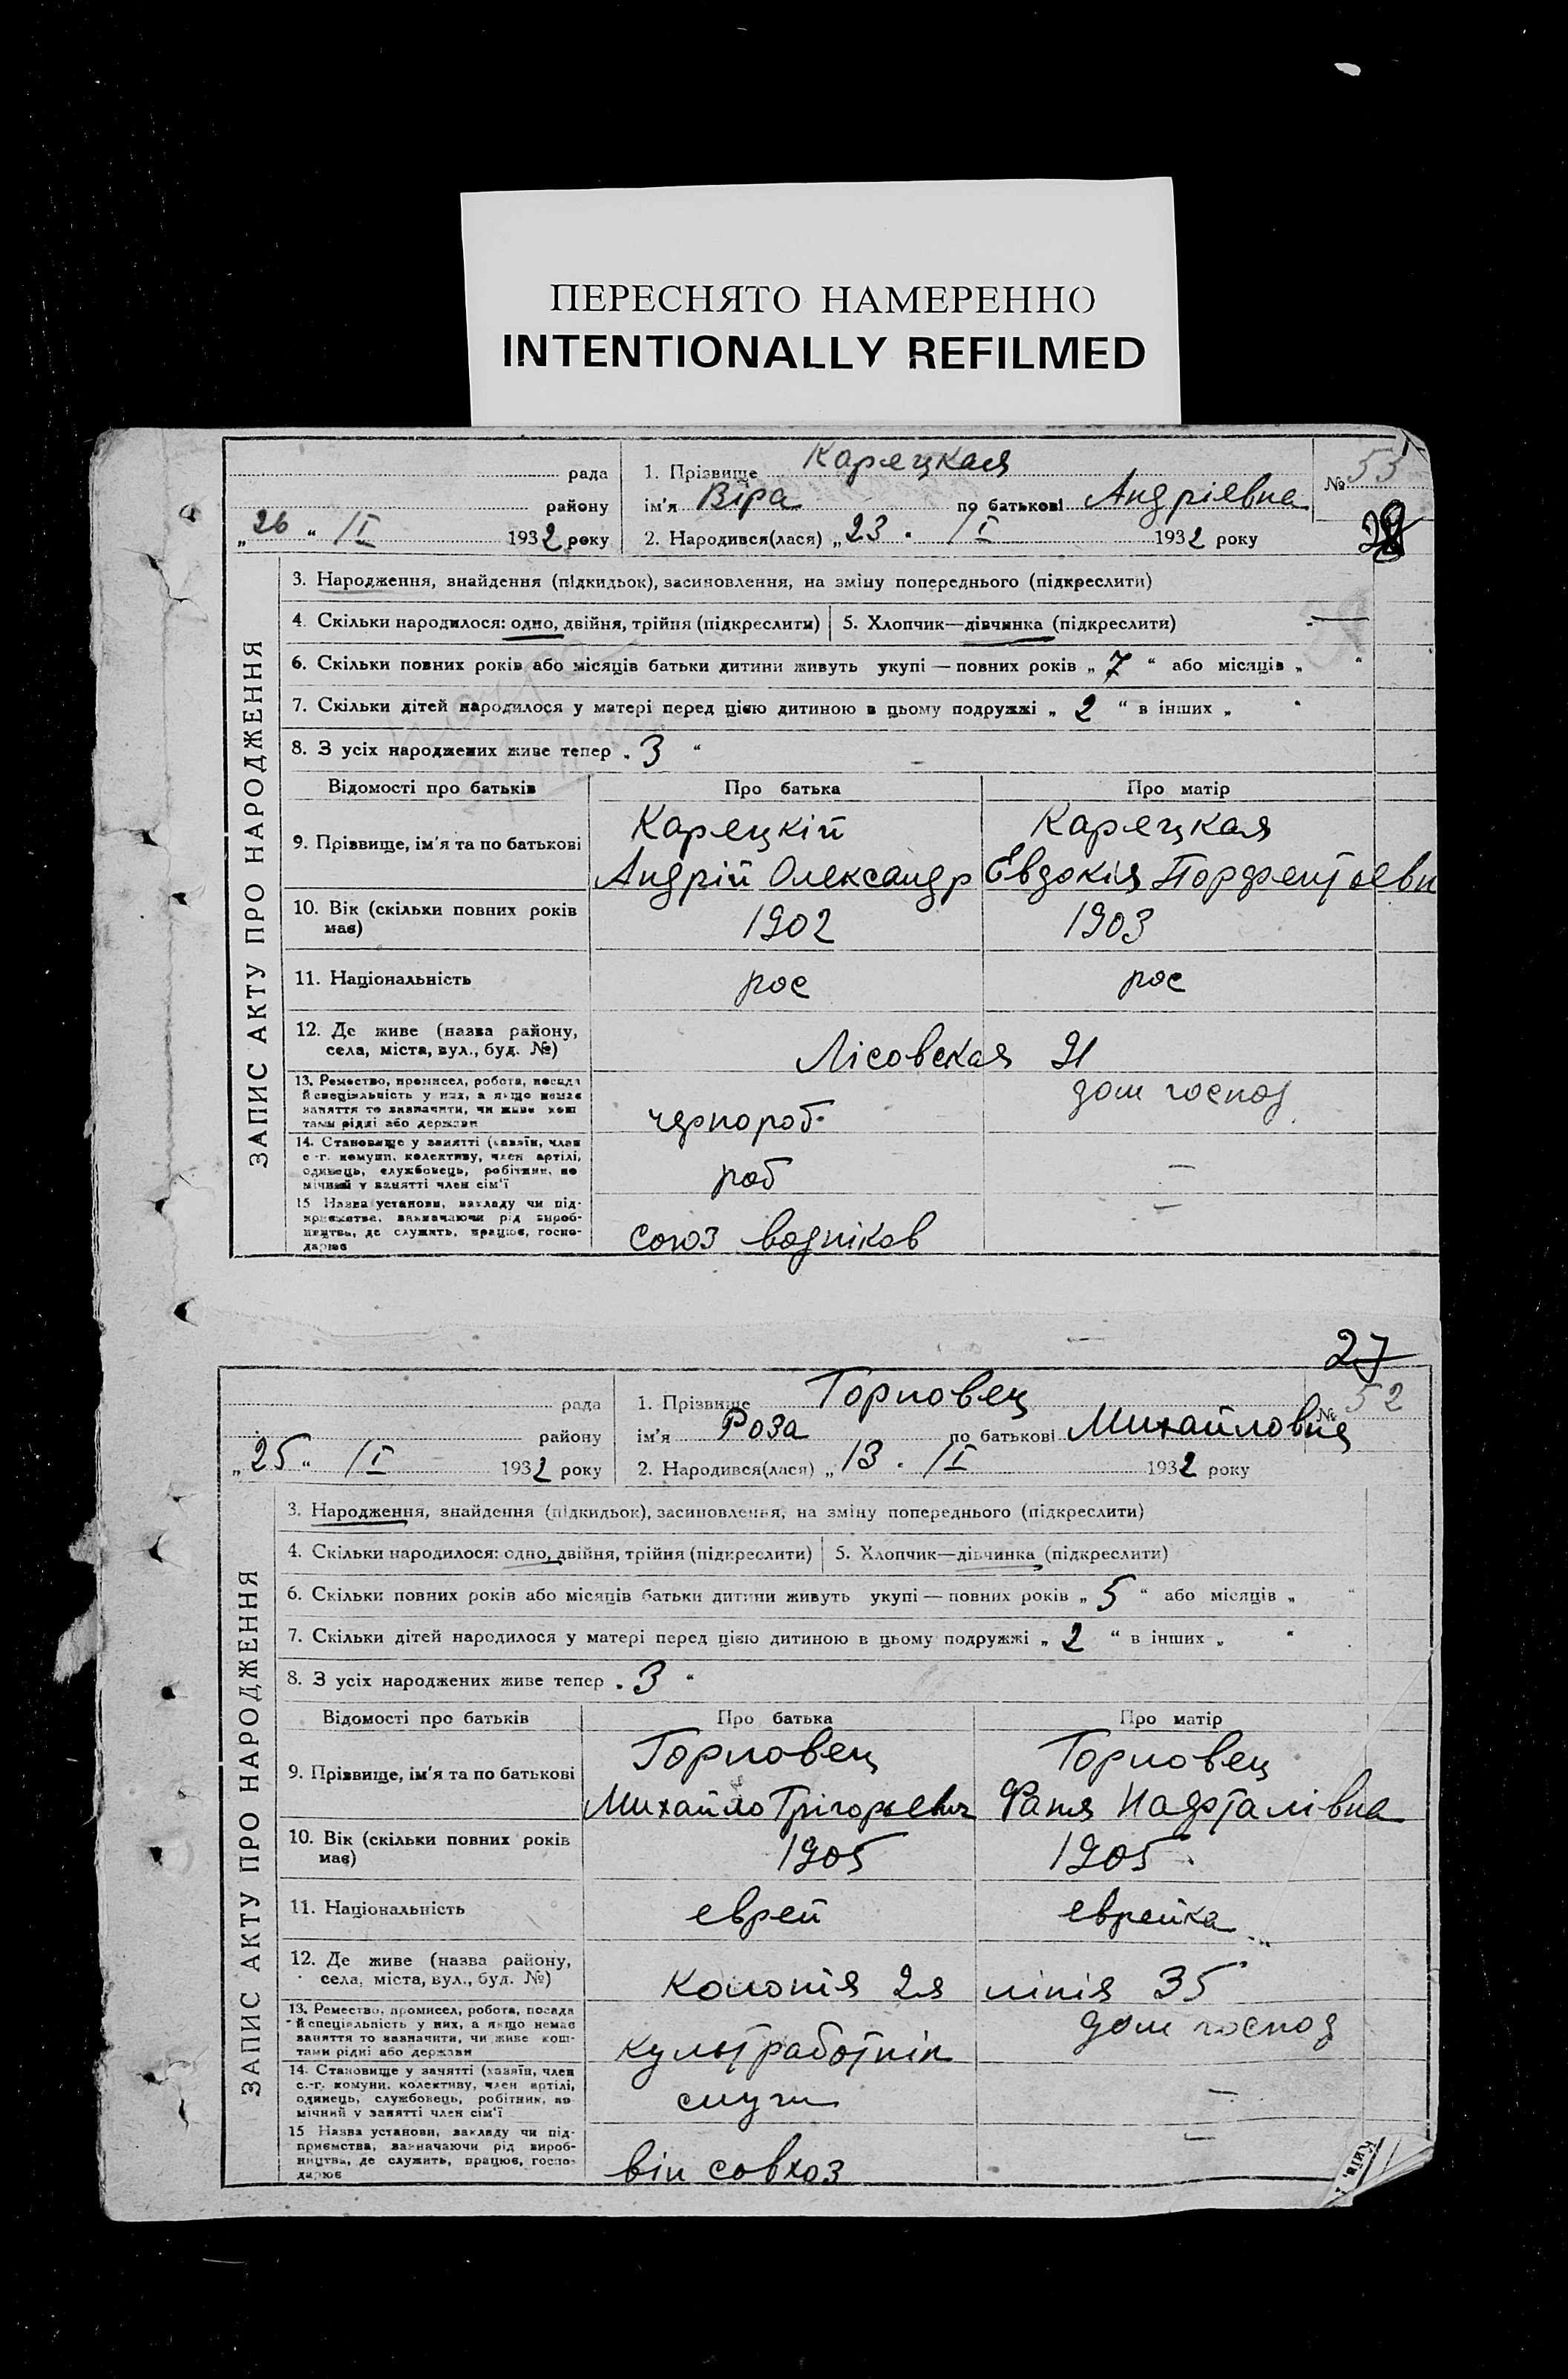 ПЕРЕСНЯТО НАМЕРЕННО
INTENTIONALLY REFILMED
ЗАПИС АКТУ ПРО НАРОДЖЕННЯ
рада
району
„26“ /I 1932 року
1. Прізвище Карецкая
ім'я Віра по батькові Андріевна
2. Народився(лася) „23. /I 1932 року
№ 53
28
3. Народження, знайдення (підкидьок), засиновлення, на зміну попереднього (підкреслити)
4. Скільки народилося: одно, двійня, трійня (підкреслити) 5. Хлопчик—дівчинка (підкреслити)
6. Скільки повних років або місяців батьки дитини живуть укупі — повних років „7“ або місяців „ “
7. Скільки дітей народилося у матері перед цією дитиною в цьому подружжі „2“ в інших „ “
8. З усіх народжених живе тепер „3“
Відомості про батьків Про батька Про матір
9. Прізвище, ім'я та по батькові
Карецкій
Андрій Олександр
Карецкая
Евдокія Порфентьевн
10. Вік (скільки повних років має) 1902 1903
11. Національність рос рос
12. Де живе (назва району, села, міста, вул., буд. №)
Лісовская 21
13. Ремество, промисел, робота, посада й спеціяльність у них, а якщо немає заняття то зазначити, чи живе коштами рідні або держави
чернороб. дом господ
14. Становище у занятті (хазяїн, член с.-г. комуни, колективу, член артілі, одинець, службовець, робітник, помічний у занятті член сім'ї
роб —
15 Назва установи, закладу чи підприємства, зазначаючи рід виробництва, де служить, працює, господарює
союз водніков —
27
ЗАПИС АКТУ ПРО НАРОДЖЕННЯ
рада
району
„25“ /I 1932 року
1. Прізвище Горновец
ім'я Роза по батькові Михайловна
2. Народився(лася) „13. /I 1932 року
№ 52
3. Народження, знайдення (підкидьок), засиновлення, на зміну попереднього (підкреслити)
4. Скільки народилося: одно, двійня, трійня (підкреслити) 5. Хлопчик—дівчинка (підкреслити)
6. Скільки повних років або місяців батьки дитини живуть укупі — повних років „5“ або місяців „ “
7. Скільки дітей народилося у матері перед цією дитиною в цьому подружжі „2“ в інших „ “
8. З усіх народжених живе тепер „3“
Відомості про батьків Про батька Про матір
9. Прізвище, ім'я та по батькові
Горновец
Михайло Грігорьевич
Горновец
Фаня Нафталівна
10. Вік (скільки повних років має) 1905 1905
11. Національність еврей еврейка
12. Де живе (назва району, села, міста, вул., буд. №)
Колонія 2я лінія 35
13. Ремество, промисел, робота, посада й спеціяльність у них, а якщо немає заняття то зазначити, чи живе коштами рідні або держави
культработнік дом господ
14. Становище у занятті (хазяїн, член с.-г. комуни, колективу, член артілі, одинець, службовець, робітник, помічний у занятті член сім'ї
служ —
15 Назва установи, закладу чи підприємства, зазначаючи рід виробництва, де служить, працює, господарює
він совхоз —
Київ,